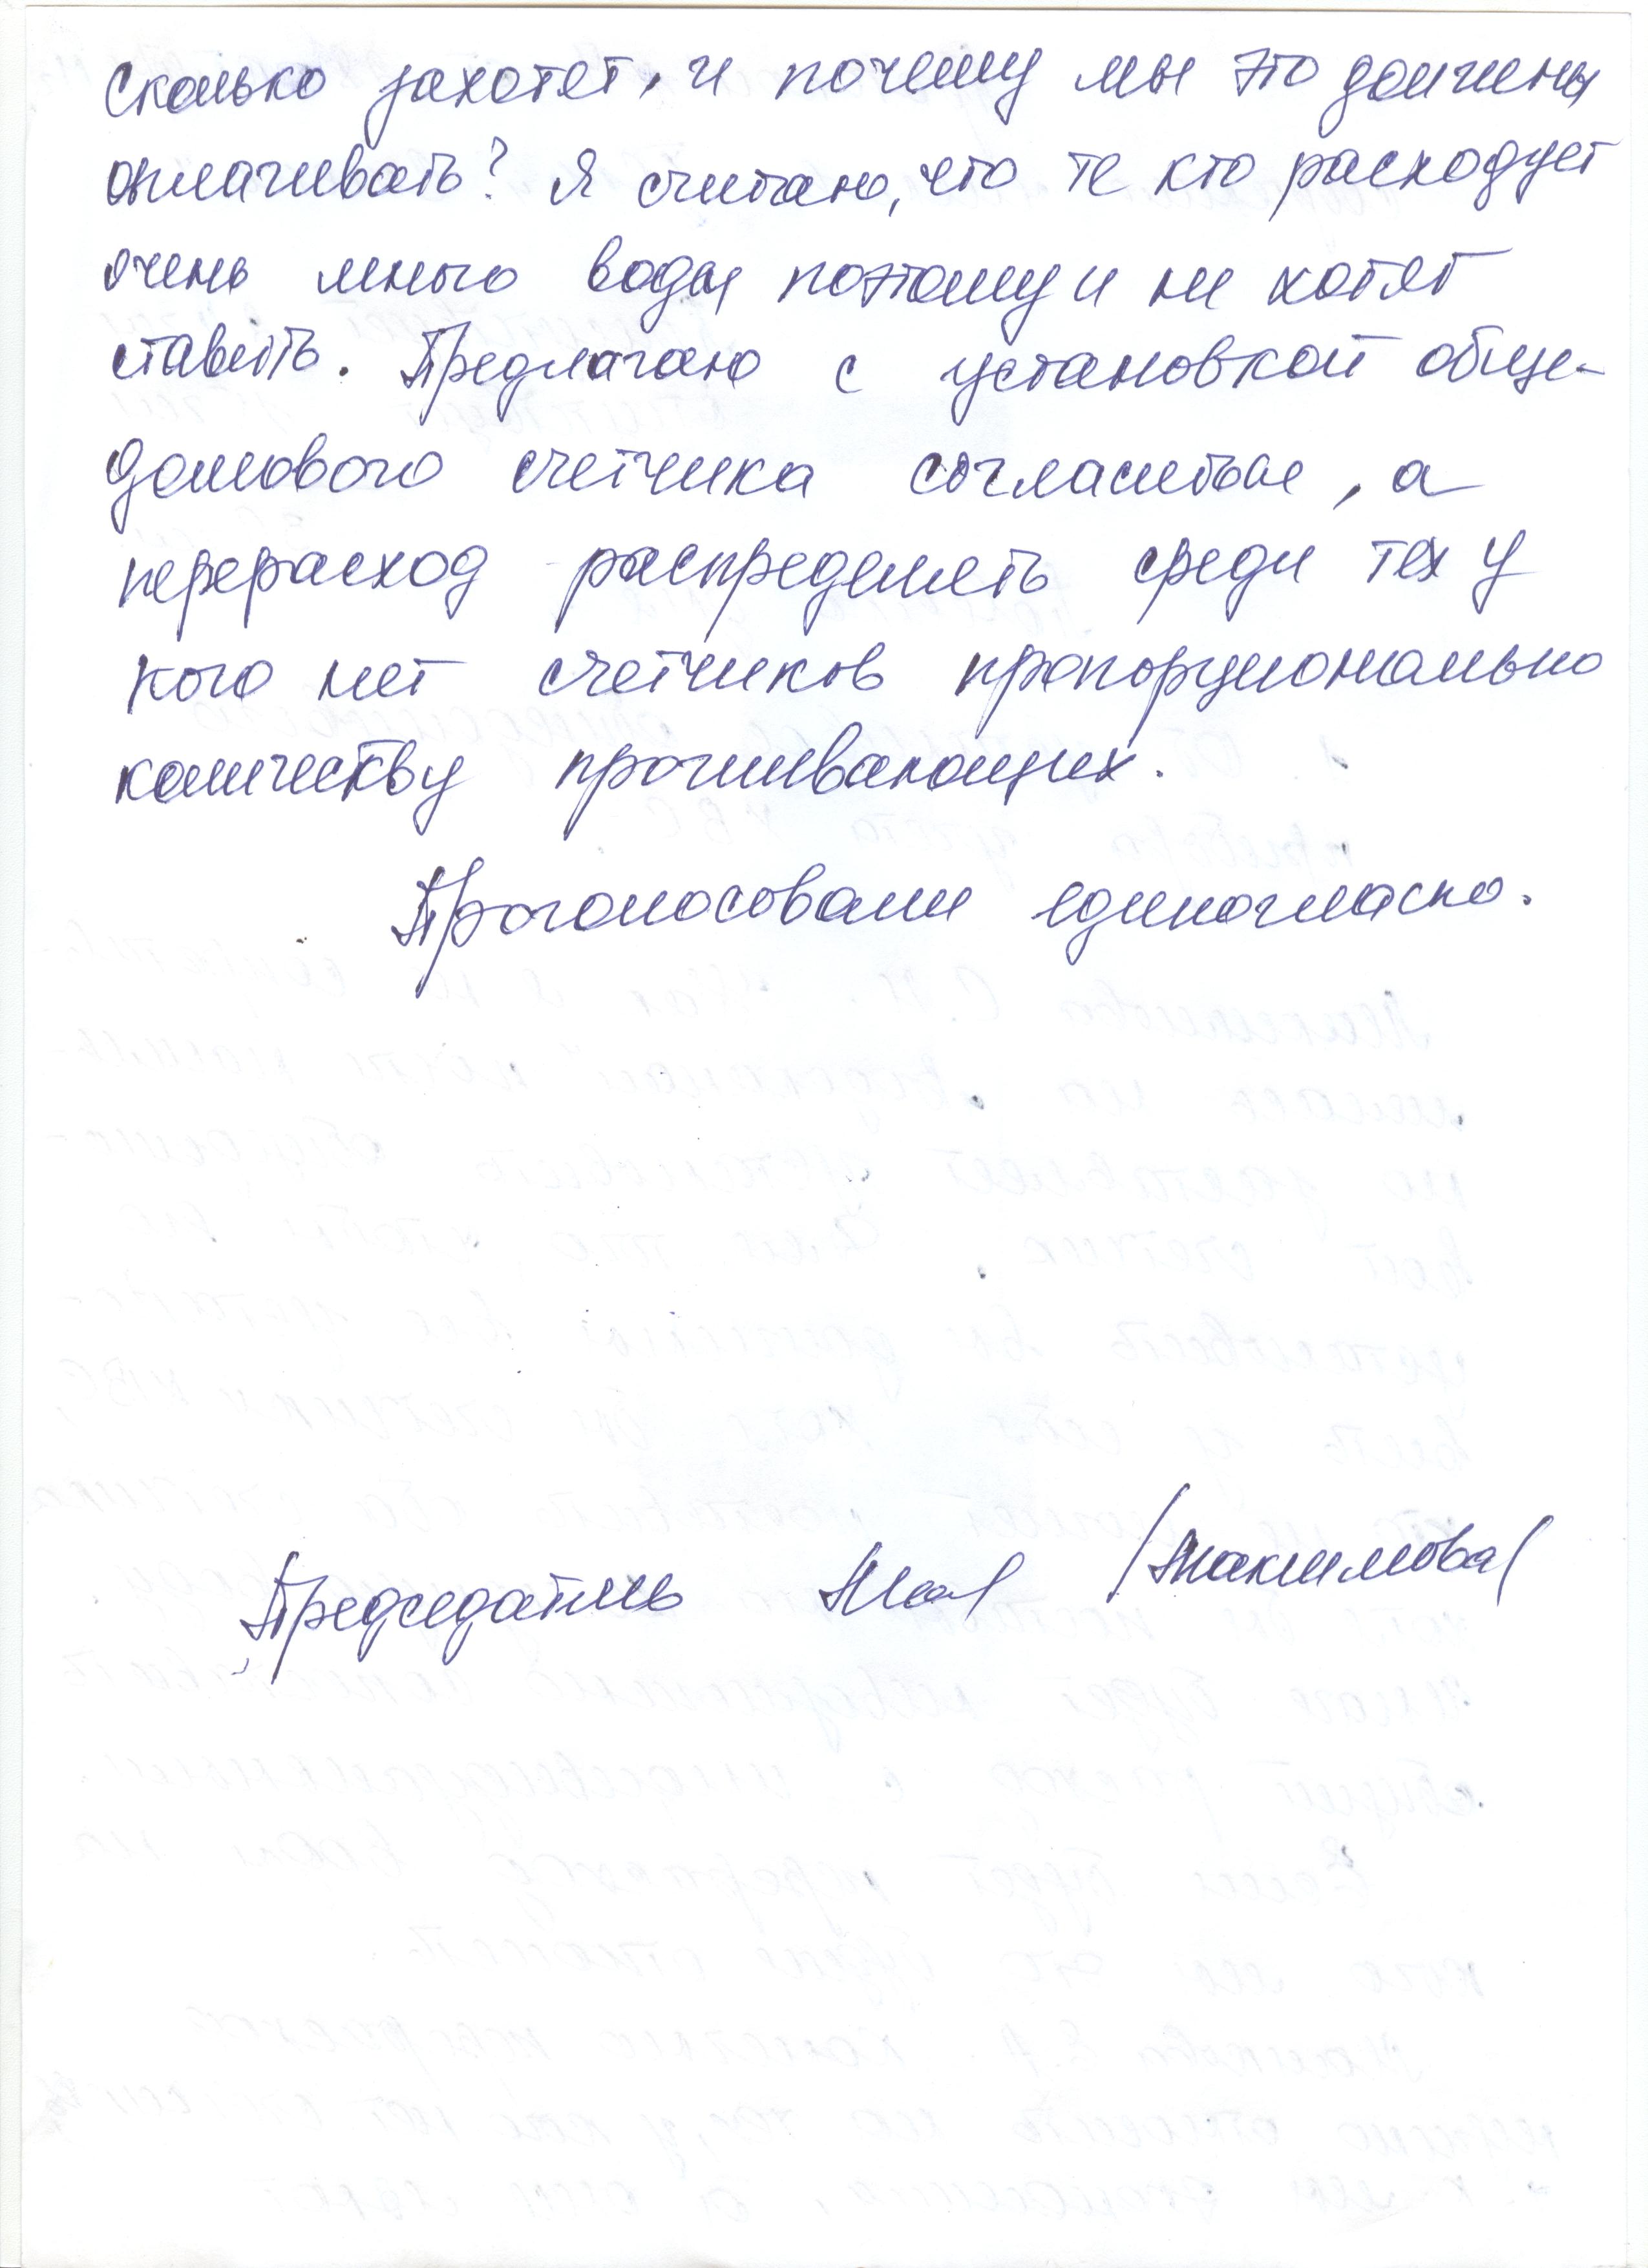 сколько захотят, и почему мы это должны
оплачивать? Я считаю, что те кто расходует
очень много воды поэтому и не хотят
ставить. Предлагаю с установкой обще-
домового счетчика согласиться, а
перерасход распределять среди тех у
кого нет счетчиков пропорционально
количеству проживающих.
Проголосовали единогласно.
Председатель /Максимова/